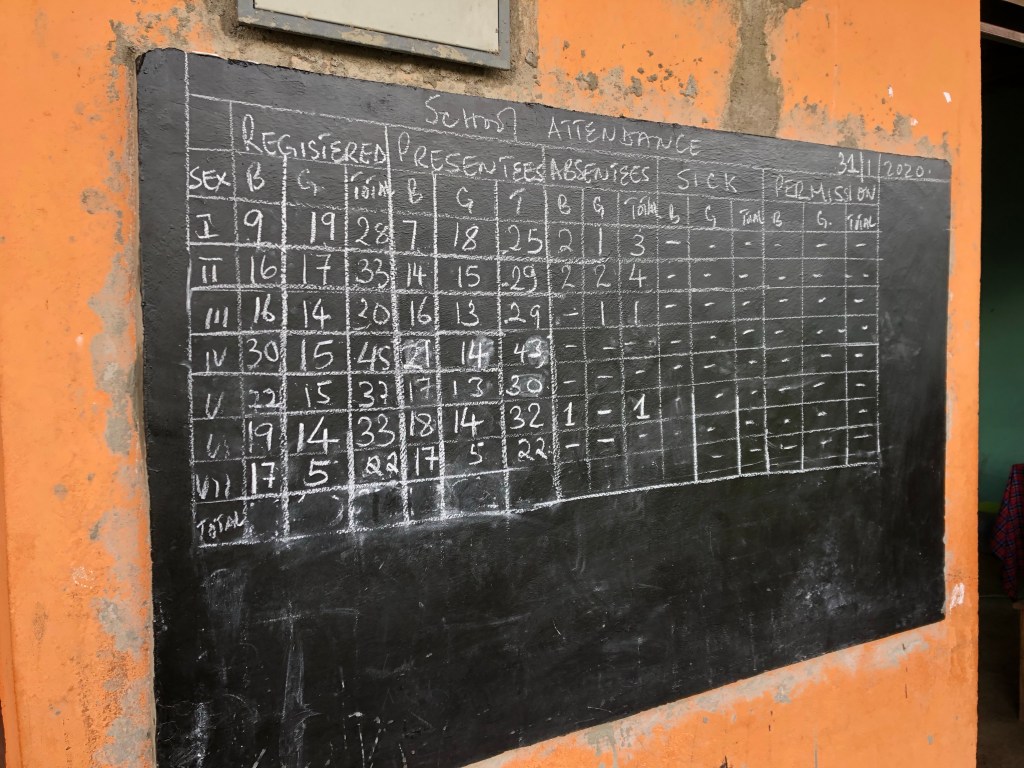 School ATTENDANCE
31/1/2020.
REGISTERED PRESENTEES ABSENTEES SICK PERMISSION
SEX B G. Total B G T B G Total B G Total B G. Total
I 9 19 28 7 18 25 2 1 3 - - - - - -
II 16 17 33 14 15 29 2 2 4 - - - - - -
III 16 14 30 16 13 29 - 1 1 - - - - - -
IV 30 15 45 29 14 43 - - - - - - - - -
V 22 15 37 17 13 30 - - - - - - - -
19 14 33 18 14 32 1 - 1 - - - - - -
VII 17 5 22 17 5 22 - - - - - - - - -
TOTAL